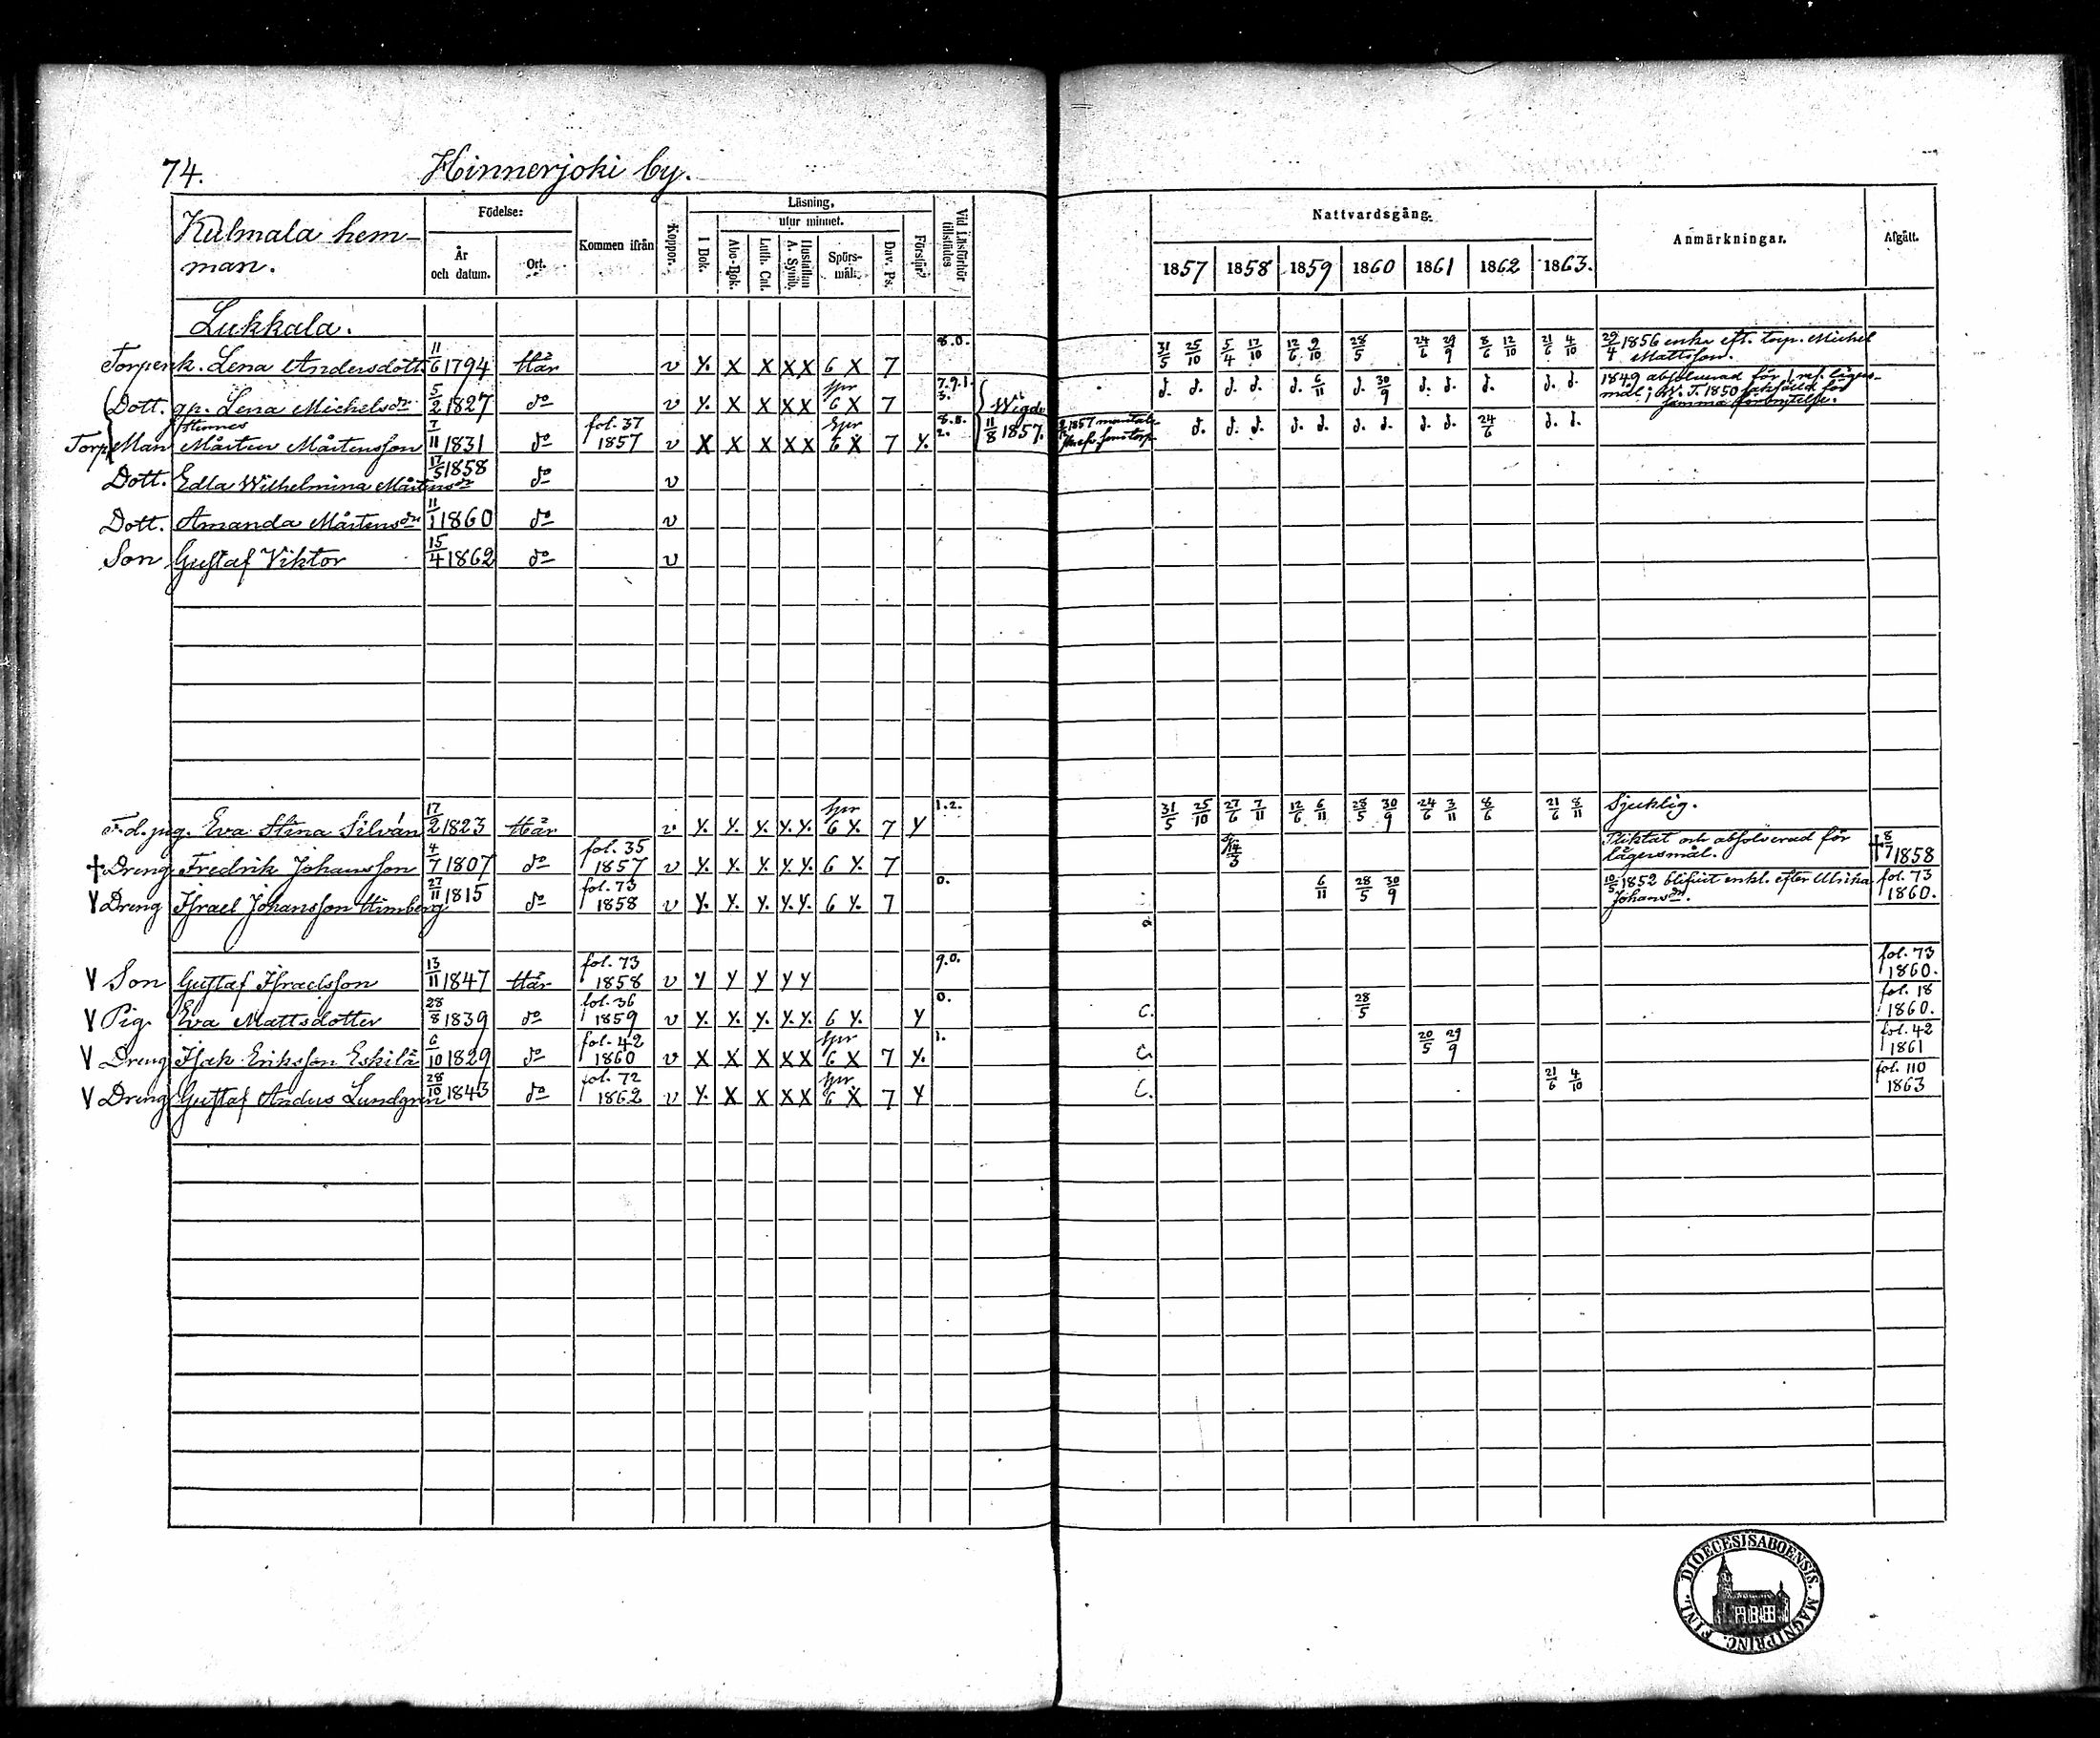 74. Hinnerjoki by.
Kulmala hem-
man.
Födelse:
År
och datum.
Ort.
Kommen ifrån
Koppor.
Läsning,
utur minnet.
I Bok.
Abc-Bok.
Luth. Cat.
Hustaflan
A. Symb.
Spörs-
mål.
Dav. Ps.
Förstår?
Vid Läsförhör
tillstädes
Nattvardsgång.
1857 1858 1859 1860 1861 1862 1863.
Anmärkningar.
Afgått.
Lukkala.
Torpenk. Lena Andersdott. 11/6 1794 Här v y. x x x x 6 x 7 8.0. 31/5 25/10 5/4 17/10 12/6 9/10 28/5 24/6 29/9 8/6 12/10 21/6 4/10 29/4 1856 enka eft. torp. Michel
Mattsson.
Dott. qp. Lena Michelsdr 5/2 1827 do v y. x x x x spr 6 x 7 7.9.1. 3. d. d. d. d. d. 6/11 d. 30/9 d. d. d. d. d. 1849 absolverad för 1 resa lägers-
mål; W. T. 1850 sakfälld för
samma förbrytelse.
Wigde
11/8 1857.
Torp. Man Mårten Mårtensson 7/11 1831 do fol. 37 1857 v x x x x x spr 6 x 7 y. 8.8. 2. d. d. d. d. d. d. d. d. d. 24/6 d. d.
Dott. Edla Wilhelmina Mårtensdr 17/5 1858 do v
Dott. Amanda Mårtensdr 11/1 1860 do v
Son Gustaf Viktor 15/4 1862 do v
F.d. pig. Eva Stina Silván 17/2 1823 Här v. y. y. y. y. y. spr 6 y. 7 y 1.2. 31/5 25/10 27/6 7/11 12/6 6/11 28/5 30/9 24/6 3/11 8/6 21/6 8/11 Sjuklig.
† Dreng Fredrik Johansson 4/7 1807 do fol. 35 1857 v y. y. y. y. y. 6 y. 7 14/3 Pliktat och absolverad för
lägersmål. † 8/7 1858
V Dreng Israel Johansson Himberg 27/11 1815 do fol. 73 1858 v y. y. y. y. y. 6 y. 7 0. 6/11 28/5 30/9 10/5 1852 blifvit enkl. efter Ulrika
Johansdr. fol. 73 1860.
V Son Gustaf Israelsson 13/11 1847 Här fol. 73 1858 v y y y y y 9.0. fol. 73 1860.
V Pig. Eva Mattsdotter 28/8 1839 do fol. 36 1859 v y. y. y. y. y. 6 y. y 0. C. 28/5 fol. 18 1860.
V Dreng Isak Eriksson Eskilä 6/10 1829 do fol. 42 1860 v x x x x x spr 6 x 7 y. 1. C. 20/5 29/9 fol. 42 1861
V Dreng Gustaf Anders Lundgren 28/10 1843 do fol. 72 1862 v y. x x x x spr 6 x 7 y C. 21/6 4/10 fol. 110 1863
DIOECESIS ABOENSIS. MAGNI PRINC. FINL.